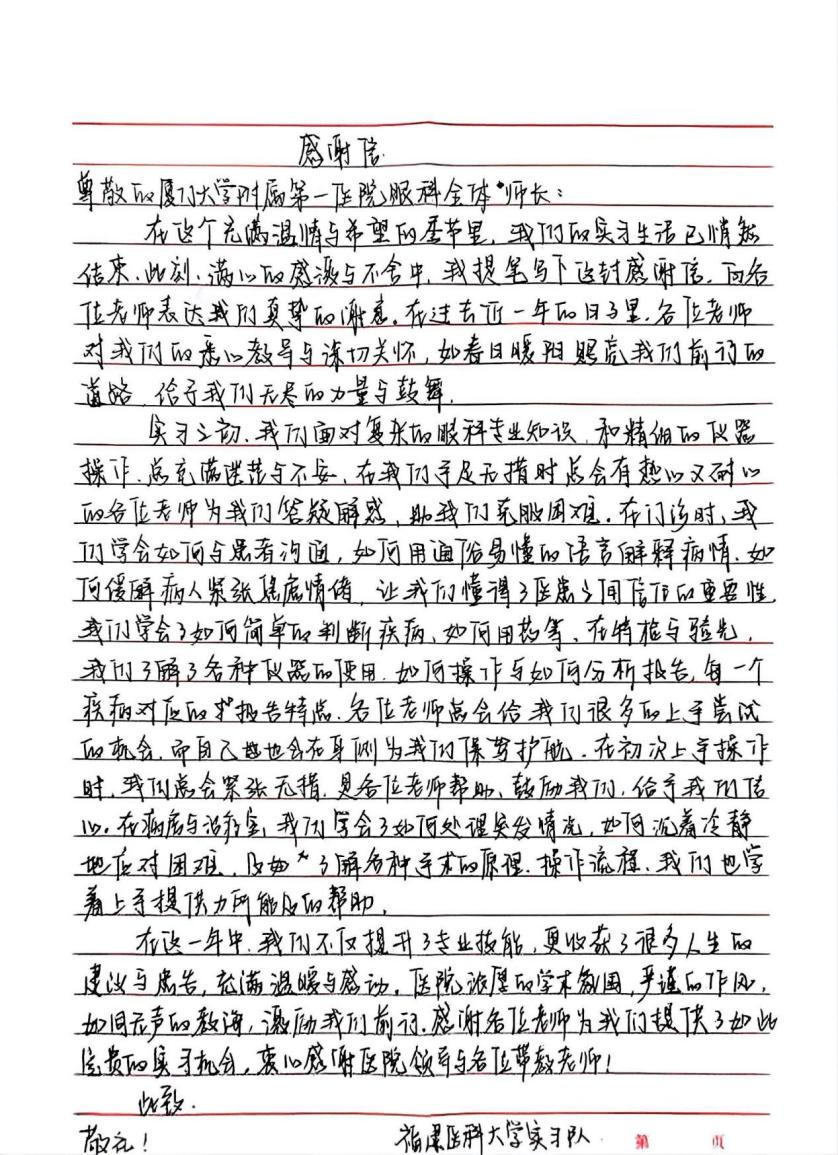 感谢信
尊敬的厦门大学附属第一医院眼科全体师长：
在这个充满温情与希望的季节里，我们的实习生活已悄然
结束，此刻，满心的感激与不舍中，我提笔写下这封感谢信，向各
位老师表达我们真挚的谢意。在过去近一年的日子里，各位老师
对我们的悉心教导与深切关怀，如春日暖阳照亮我们前行的
道路，给予我们无尽的力量与鼓舞。
实习之初，我们面对复杂的眼科专业知识，和精细的仪器
操作，总充满迷茫与不安，在我们手足无措时总会有热心又耐心
的各位老师为我们答疑解惑，助我们克服困难。在门诊时，我
们学会如何与患者沟通，如何用通俗易懂的语言解释病情，如
何缓解病人紧张焦虑情绪，让我们懂得了医患之间信任的重要性，
我们学会了如何简单的判断疾病，如何用药等，在特检与验光，
我们了解了各种仪器的使用，如何操作与如何分析报告，每一个
疾病对应的报告特点，各位老师总会给我们很多的上手尝试
的机会，而自己也会在身侧为我们保驾护航，在初次上手操作
时，我们总会紧张无措，是各位老师帮助、鼓励我们，给予我们信
心。在病房与治疗室，我们学会了如何处理突发情况，如何沉着冷静
地应对困难，及如了解各种手术的原理、操作流程，我们也学
着上手提供力所能及的帮助。
在这一年中，我们不仅提升了专业技能，更收获了很多人生的
建议与忠告，充满温暖与感动。医院浓厚的学术氛围，严谨的作风，
如同无声的教诲，激励我们前行。感谢各位老师为我们提供了如此
宝贵的实习机会，衷心感谢医院领导与各位带教老师！
此致，
敬礼！ 福建医科大学实习队
第 页